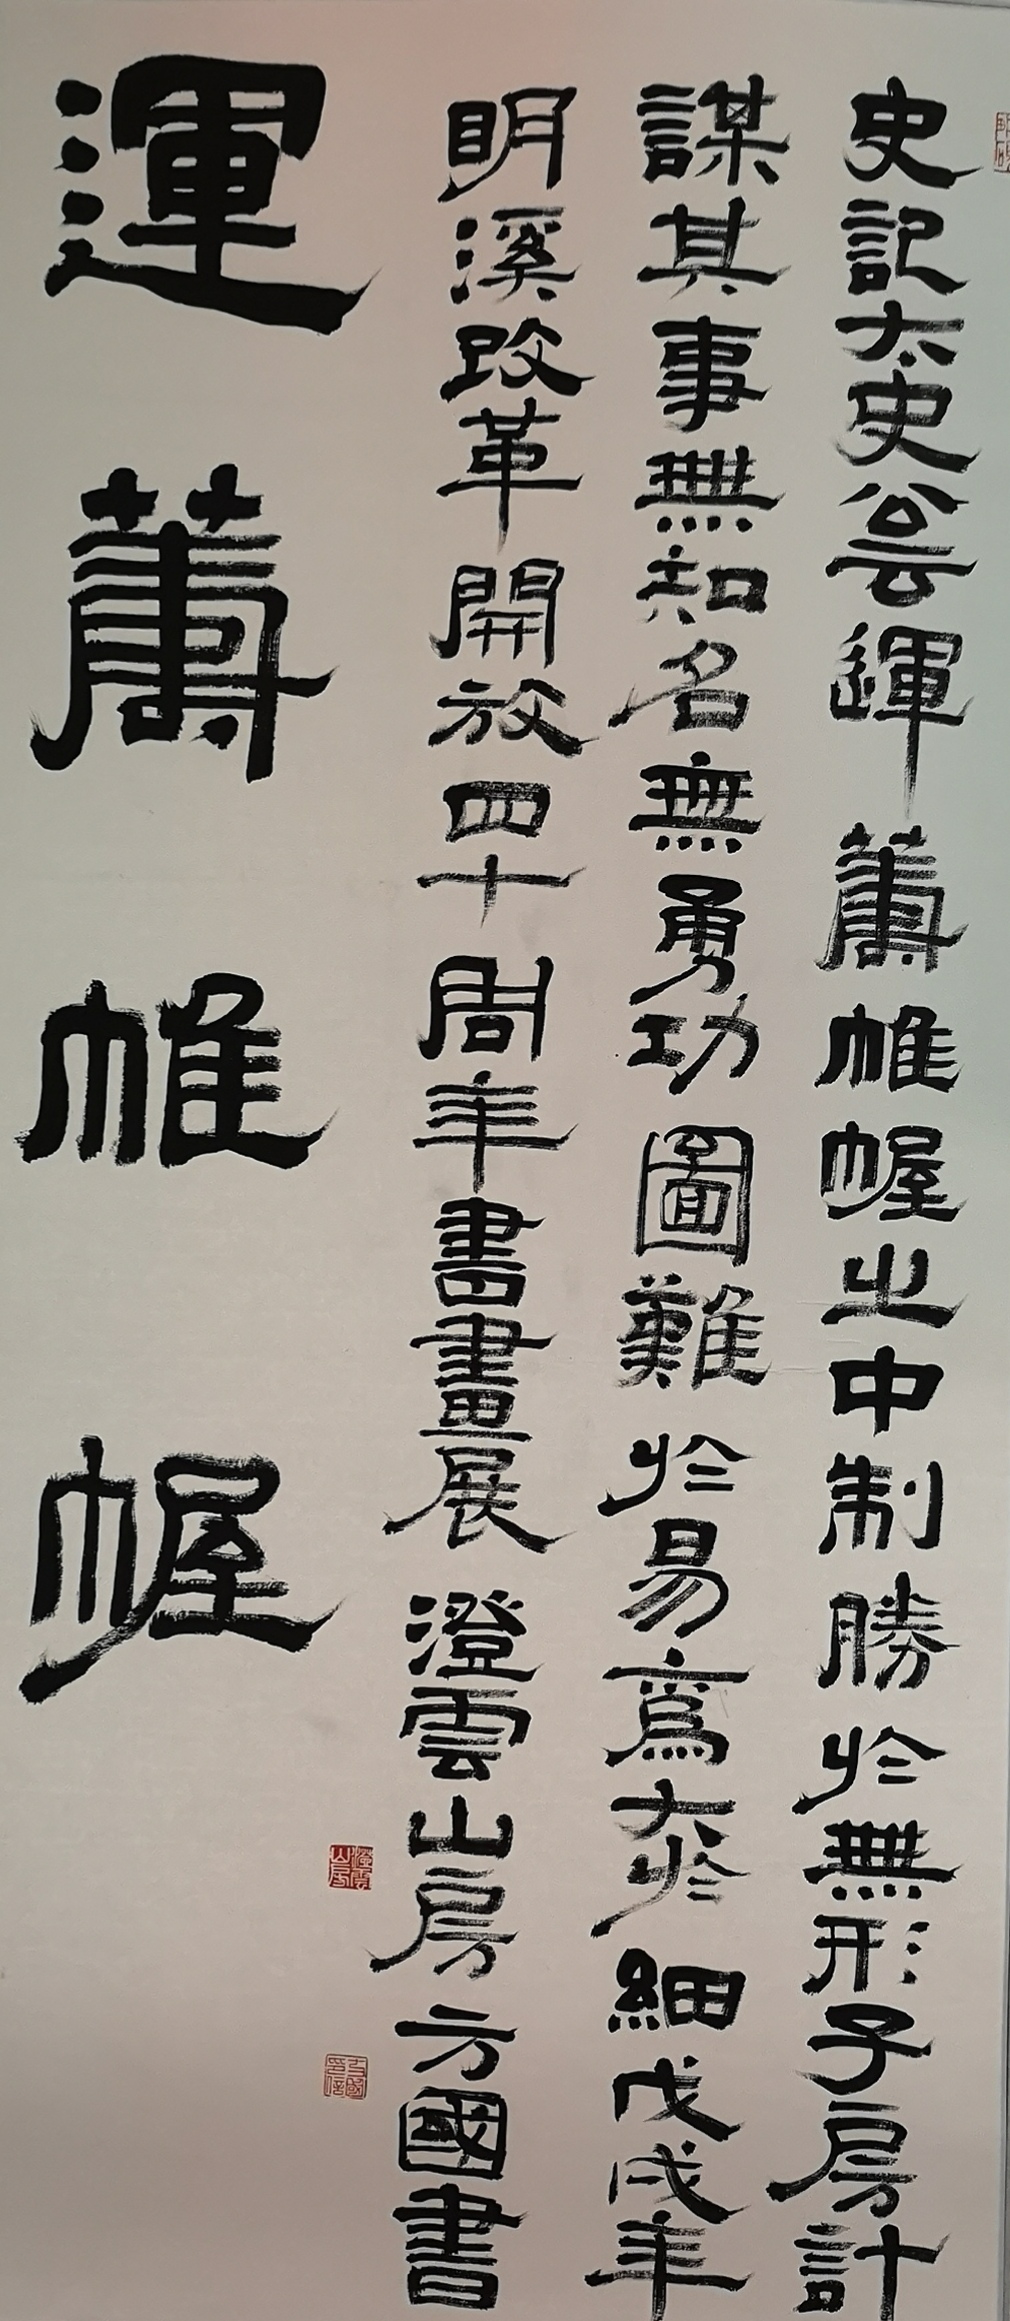 史記太史公云運籌帷幄之中制勝於無形子房計
謀其事無知名無勇功圖難於易為大於細戊戌年
明溪改革開放四十周年書畫展澄雲山房方國書
運籌帷幄
澄雲山房
方國印信